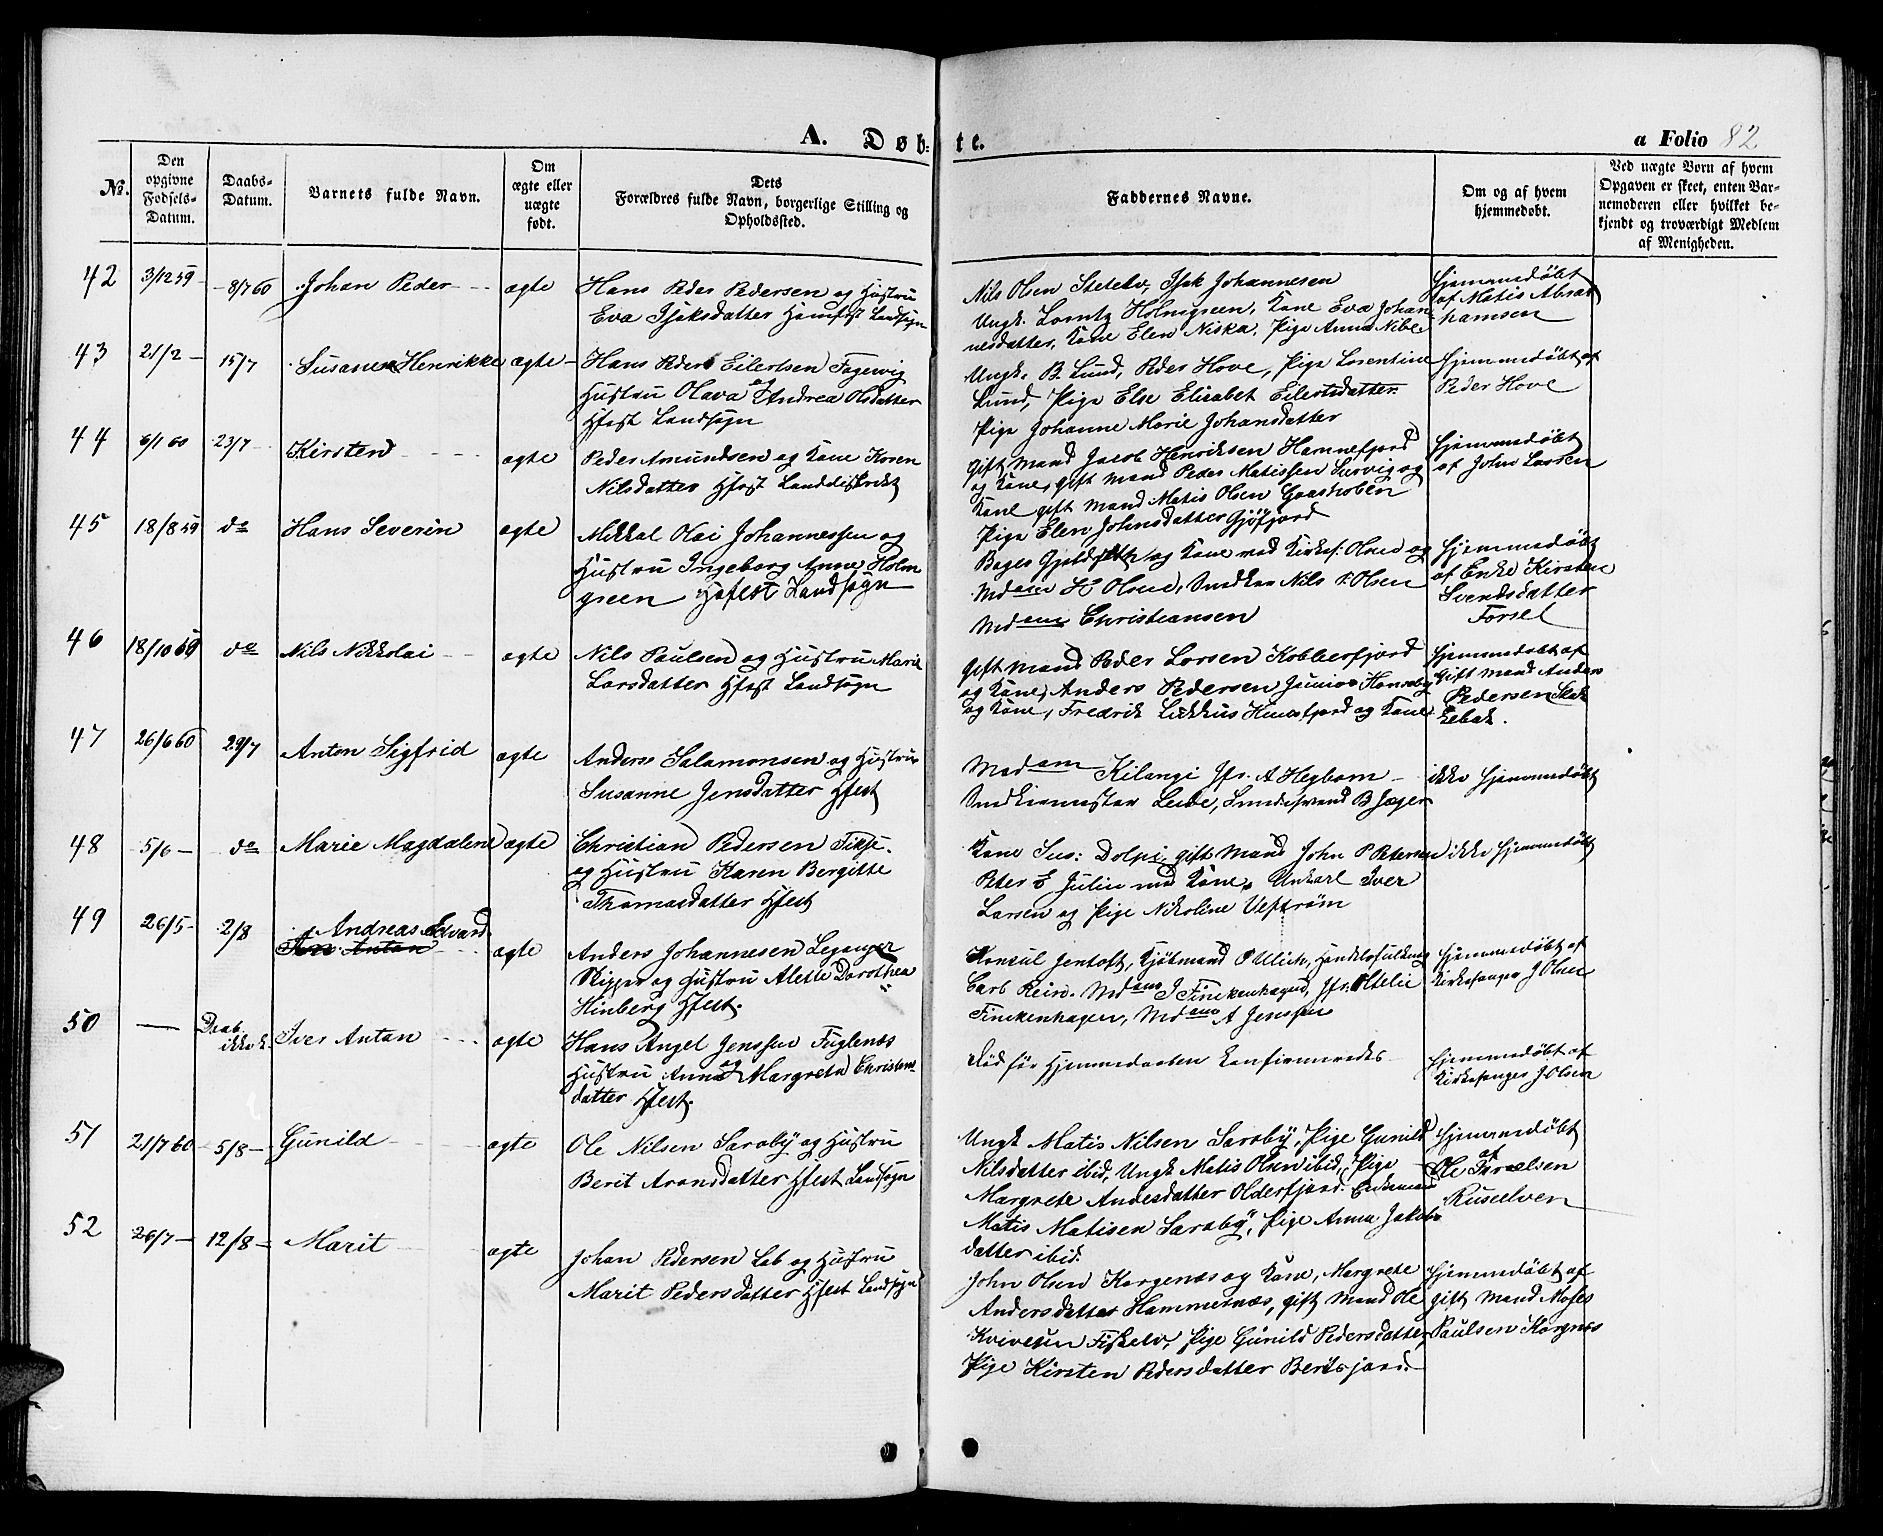 A. Døb=
te.
a Folio 82
No.
Den opgivne Fødsels-Datum.
Daabs-Datum.
Barnets fulde Navn.
Om ægte eller uægte født.
Dets Forældres fulde Navn, borgerlige Stilling og Opholdssted.
Faddernes Navne.
Om og af hvem hjemmedøbt.
Ved uægte Born af hvem Opgaven er skeet, enten Barnemoderen eller hvilket bekjendt og troværdigt Medlem af Menigheden.
42 3/12 59 8/7 60 Johan Peder ægte
Hans Peder Pedersen og Hustru
Eva Isaksdatter Hamfest Landsogn
Nils Olsen Stetelv, Isak Johannesen
Ungk. Lorntz Holmgreen, Kone Eva Johan=
nesdatter, Kone Elen Niska, Pige Anna Nibe
Hjemmedøbt
af Matis Abra
hamsen
43 21/2 - 15/7 Susane Henrikke ægte
Hans Peder Eilertsen Fagervig
Hustru Olava og Andrea Olsdatter
Hfest Landsogn
Ungk. B. Lund, Peder Hove, Pige Lorentine
Lund, Pige Else Elisabet Eilertsdatter.
Pige Johanne Marie Johansdatter
Hjemmedøbt af
Peder Hove
44 6/1 60 23/7 Kirsten ægte
Peder Amundsen og Kone Karen
Nilsdatter Hfest Landdistrikt
Gift Mand Jacob Henriksen Hammefjord
og Kone, gift Mand Peder Matissen Survig og
Kone gift Mand Matis Olsen
Pige Elen Johnsdatter Gjøfjord
Hjemmedøbt
af John Larsen
45 18/8 59 do Hans Severin ægte
Mikkal Olai Johannessen og
Hustru Ingeborg Anne Holm
green Hfest Landsogn
Bager og Kone med Kirkes: Olsen og
Madam H Olsen, Snedker Nils P. Olsen
Madam Christiansen
Hjemmedøbt
af Enke Kirsten
Svendsdatter
Forsel
46 18/10 60 do Nils Nikkolai ægte
Nils Paulsen og Hustru Marie
Larsdatter Hfest Landsogn
Gift Mand Peder Larsen Kobberfjord
og Kone, Anders Pedersen Junior
og Kone, Fredrik og Kone
Hjemmedøbt af
Gift Mand Anders
Pedersen
47 26/6 60 29/7 Anton Sigfrid ægte
Anders Salamonsen og Hustru
Susanne Jensdatter Hfest
Madam Kilangi Jfr. A Hegbom
B Jæger
ikke Hjemmedøbt
48 5/6 - do Marie Magdalene ægte
Christian Pedersen
og Hustru Karen Bergitte
Thomasdatter Hfest
Kone Sus: Dolpi, gift Mand John P Petersen
Peter E Julin med Kone, Unkarl Iver
Larsen og Pige Nikoline Vestrøm
ikke Hjemmedøbt
49 26/5 - 2/8 Andreas Edvard
Iver Anton
ægte
Anders Johannesen Leganger
Skipper og Hustru Alette Dorothea
Hinberg Hfest.
Konsul Jentoft, Kjøbmand P Ulich, Handelsfuldm
Carb Rein. Madam J Finckenhagen, Jfr. Otelie
Finckenhagen, Madam A Jenssen
Hjemmedøbt af
Kirkesanger J Olsen
50 — Daab
ikke
Iver Anton ægte
Hans Angel Jenssen Fuglenæs
Hustru Anna og Margreta Christens
datter Hfest.
Død før Hjemmedaaben konfirmeredes
Hjemmedøbt af
Kirkesanger J Olsen
51 21/7 60 5/8 - Gunild ægte
Ole Nilsen Saraby og Hustru
Berit Aronsdatter Hfest Landsogn
Ungk Matis Nilsen Saraby, Pige Gunild
Nilsdatter ibid, Ungk Matis Olsen ibid, Pige
Margrete Andersdatter Olderfjord. Enkemand
Matis Matisen Saraby, Pige Anna Jakobs
datter ibid.
Hjemmedøbt
af
Ole Israelsen
Ruselven
52 26/7 - 12/8 - Marit ægte
Johan Pedersen Lab og Hustru
Marit Pedersdatter Hfest Landsogn
John Olsen Kargenæs og Kone, Margrete
Andersdatter Hammernæs, gift Mand Ole
Kvivesen Fiskelv, Pige Gunild Pedersdatter,
Pige Kirsten Pedersdatter
Hjemmedøbt af
gift Mand Moses
Paulsen Kargnæs